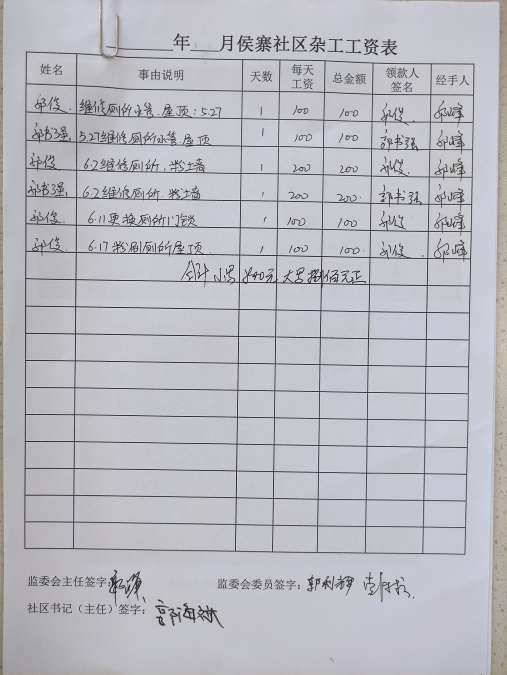 年 月侯寨社区杂工工资表
姓名 事由说明 天数 每天工资 总金额 领款人签名 经手人
郭俊 维修厕所水管.屋顶:5.27 1 100 100 郭俊 郭峰
郭书强 5.27维修厕所水管.屋顶 1 100 100 郭书强 郭峰
郭俊 6.2维修厕所.粉土墙 1 200 200 郭俊 郭峰
郭书强 6.2维修厕所.粉土墙 1 200 200 郭书强 郭峰
郭俊 6.11更换厕所门锁 1 100 100 郭俊 郭峰
郭俊 6.17粉刷厕所屋顶 1 100 100 郭俊 郭峰
合计 小写 元 大写 捌佰元正
监委会主任签字: 监委会委员签字:郭利稳
社区书记(主任)签字:郭海斌